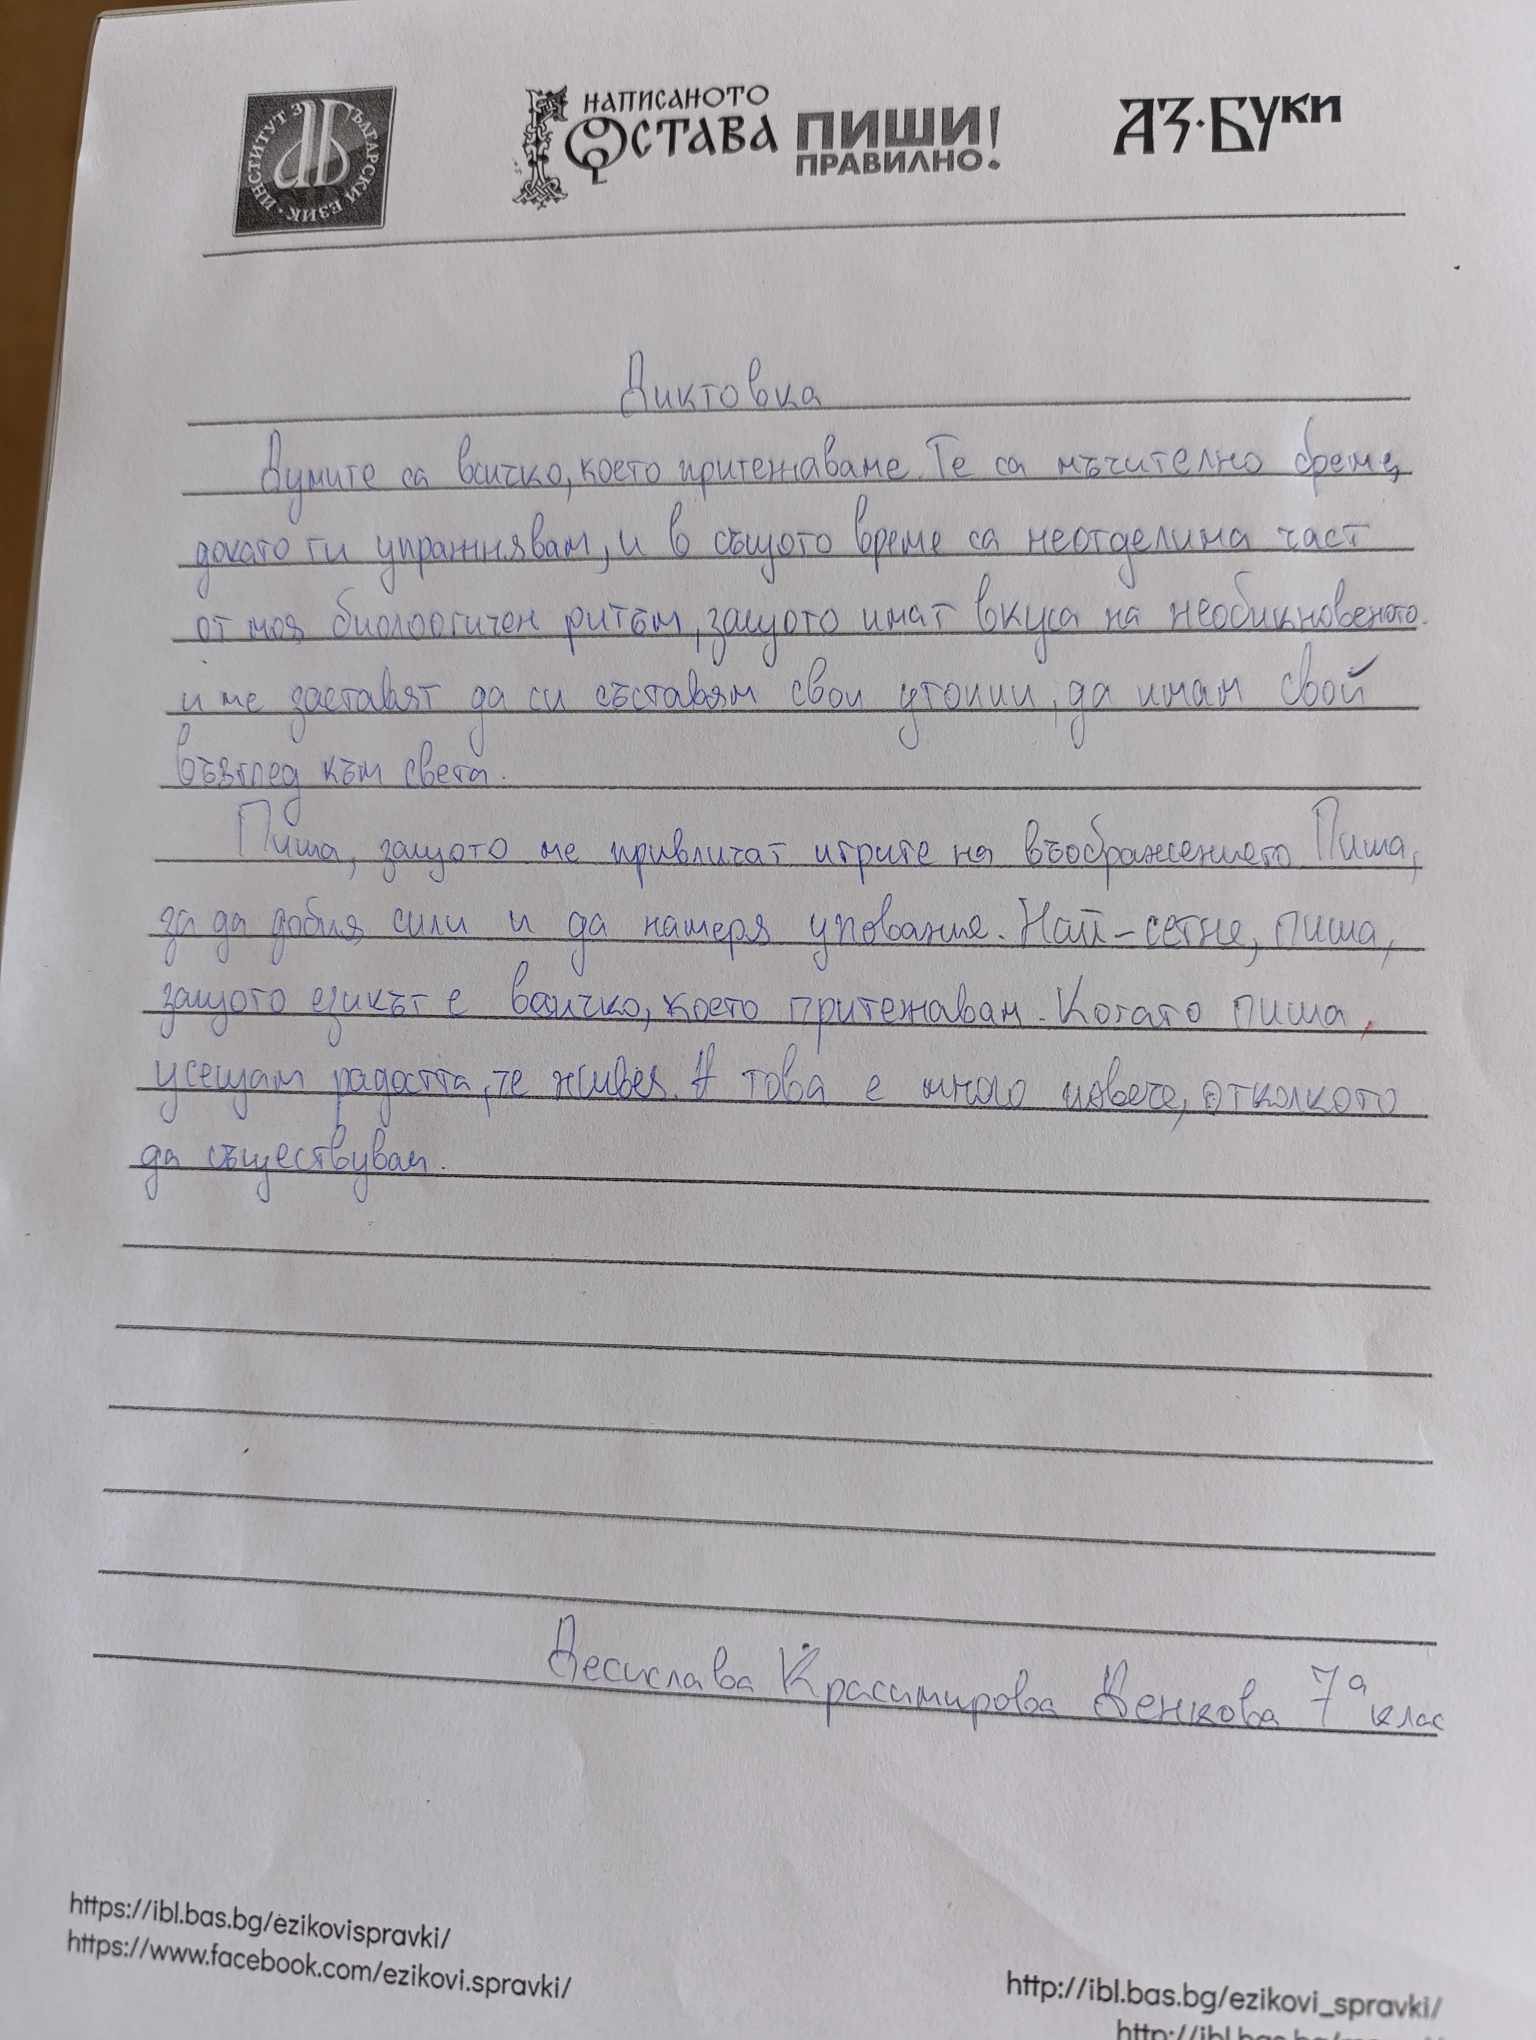 ИНСТИТУТ ЗА БЪЛГАРСКИ ЕЗИК
НАПИСАНОТО
ОСТАВА
ПИШИ
ПРАВИЛНО!
АЗ·БУКИ
Диктовка
Думите са всичко, което притежаваме. Те са мъчително бреме,
докато ги упражнявам, и в същото време са неотделима част
от моя биологичен ритъм, защото имат вкуса на необикновеното
и ме заставят да си съставям свои утопии, да имам свой
възглед към света.
Пиша, защото ме привличат игрите на въображението. Пиша,
за да добия сили и да намеря упование. Най-сетне, пиша,
защото езикът е всичко, което притежавам. Когато пиша,
усещам радостта, че живея. А това е много повече, отколкото
да съществувам.
Десислава Красимирова Денкова 7а клас
https://ibl.bas.bg/ezikovispravki/
https://www.facebook.com/ezikovi.spravki/
http://ibl.bas.bg/ezikovi_spravki/